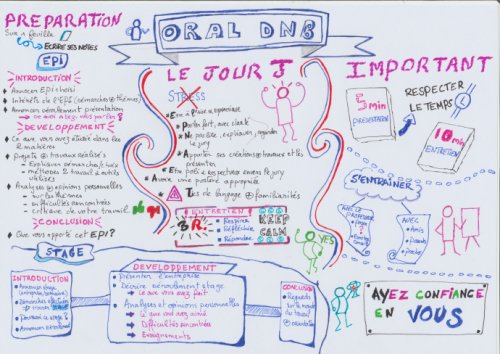 PREPARATION
Sur 1 feuille
ECRIRE SES NOTES
EPI
INTRODUCTION
Annoncer EPI choisi
Intérêts de l'EPI (démarches thèmes)
Annoncer déroulement présentation
→ De quoi allez-vous parler?
DEVELOPPEMENT
Ce que vous avez étudié dans les
2 matières
Projets travaux réalisés
- Expliquer démarche
- meilleurs travail outils
utilisés
Analyses opinions personnelles
- sur les thèmes
- difficultés rencontrées
- critique de votre travail
CONCLUSIONS
Que vous apporté cet EPI?
ORAL DNB
LE JOUR J
STRESS
Etre à l'aise
Parler fort, avec clarté
Ne pas lire, expliquer, regarder
le jury
Apporter ses créations travaux et les
présenter
Etre poli respectueux envers le jury
Avoir une posture appropriée
Tics de langage familiarités
ENTRETIEN
3R:
- Respirer
- Réfléchir
- Répondre
KEEP
CALM
YES
IMPORTANT
5 min
PRESENTATION
RESPECTER
LE TEMPS
10 mn
ENTRETIEN
S'ENTRAINER
AVEC
LE PROFESSEUR
AVEC
- Amis
- Parents
AYEZ CONFIANCE
EN VOUS
STAGE
INTRODUCTION
Annoncer stage
Pourquoi ce stage?
Annoncer déroulement
DEVELOPPEMENT
Présenter l'entreprise
Décrire déroulement stage
→ Ce que vous avez fait
Analyses et opinions personnelles
→ Ce que vous avez aimé
→ Difficultés rencontrées
→ Enseignements
CONCLUSION
orientation